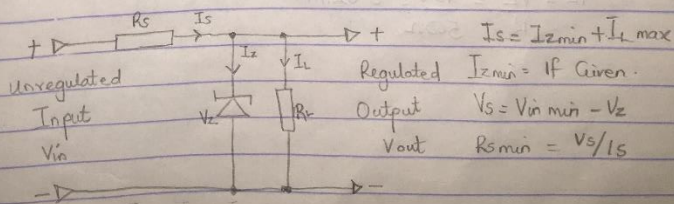 Rs
Is
+
+
Is = Izmin + IL max
Iz
IL
Unregulated
Regulated
Izmin = If Given.
Input
Vz
RL
Output
Vs = Vin min - Vz
Vin
Vout
Rs min = Vs/Is
-
-